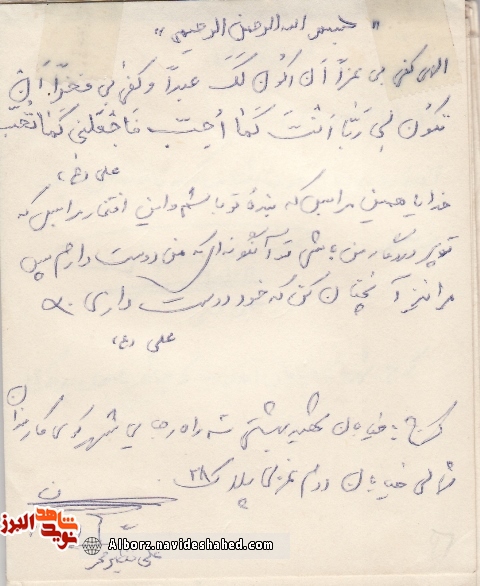 " بسم الله الرحمن الرحیم "
الهی کفی بی عزاً اَن اکونَ لَکَ عبداً و کفی بی فخراً اَن
تکونَ لی رَبّاً اَنتَ کَما اُحِبّ فَاجْعَلْنی کَما تُحِبّ
علی (ع)
خدایا همین مرا بس که بنده تو باشم و این افتخار مرا بس که
تو پروردگار من باشی تو آنگونه ای که من دوست دارم پس
مرا نیز آنچنان کن که خود دوست داری
علی (ع)
کرج خیابان شهید بهشتی سه راه رجایی شهر کوی کارمندان
شمالی خیابان دوم غربی پلاک ۲۸
شاهد
نوید
البرز
Alborz.navideshahed.com